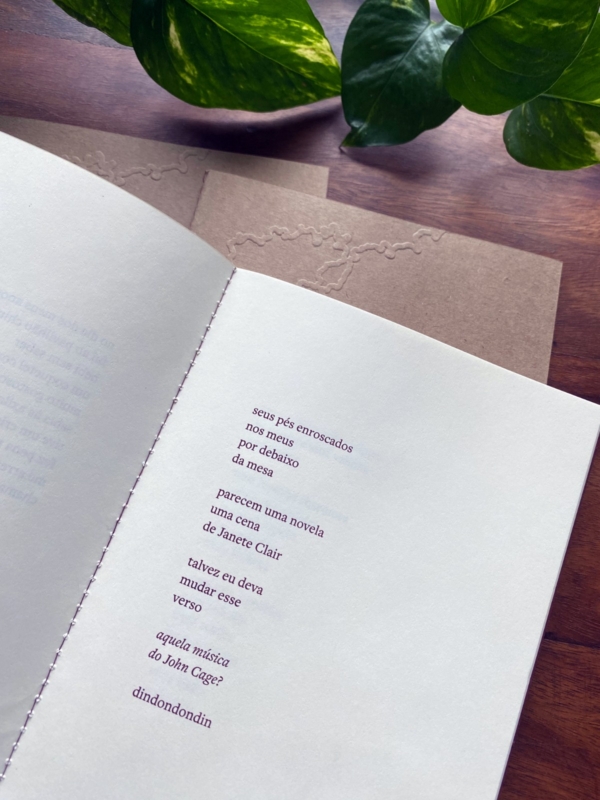 seus pés enroscados
nos meus
por debaixo
da mesa
parecem uma novela
uma cena
de Janete Clair
talvez eu deva
mudar esse
verso
aquela música
do John Cage?
dindondondin